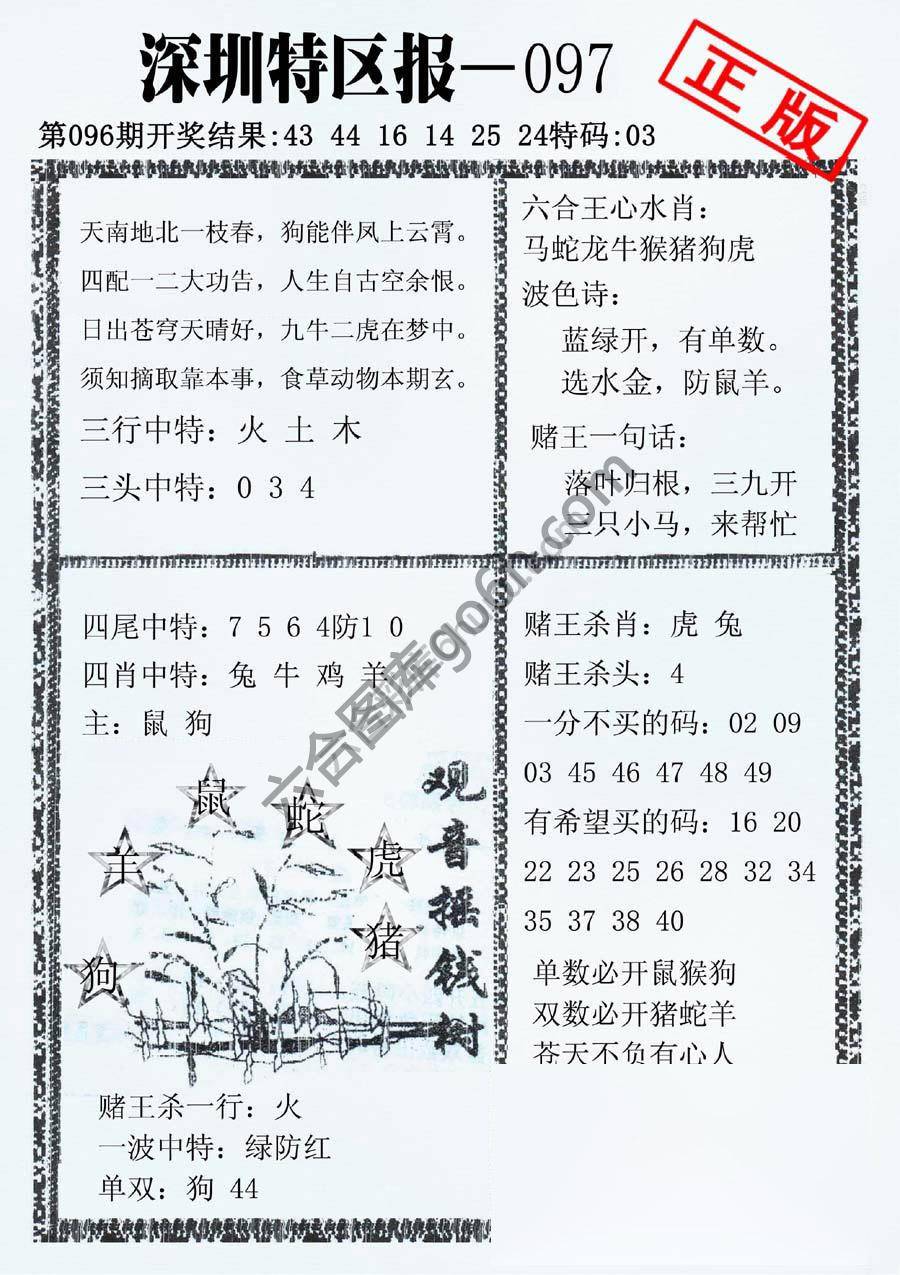 深圳特区报—097
正版
第096期开奖结果:43 44 16 14 25 24特码:03
天南地北一枝春，狗能伴凤上云霄。
四配一二大功告，人生自古空余恨。
日出苍穹天晴好，九牛二虎在梦中。
须知摘取靠本事，食草动物本期玄。
三行中特：火 土 木
三头中特：0 3 4
六合王心水肖：
马蛇龙牛猴猪狗虎
波色诗：
蓝绿开，有单数。
选水金，防鼠羊。
赌王一句话：
落叶归根，三九开
三只小马，来帮忙
四尾中特：7 5 6 4防1 0
四肖中特：兔 牛 鸡 羊
主：鼠 狗
鼠
蛇
羊
虎
猪
狗
观音摇钱树
赌王杀一行：火
一波中特：绿防红
单双：狗 44
赌王杀肖：虎 兔
赌王杀头：4
一分不买的码：02 09
03 45 46 47 48 49
有希望买的码：16 20
22 23 25 26 28 32 34
35 37 38 40
单数必开鼠猴狗
双数必开猪蛇羊
苍天不负有心人
六合图库go6h.com